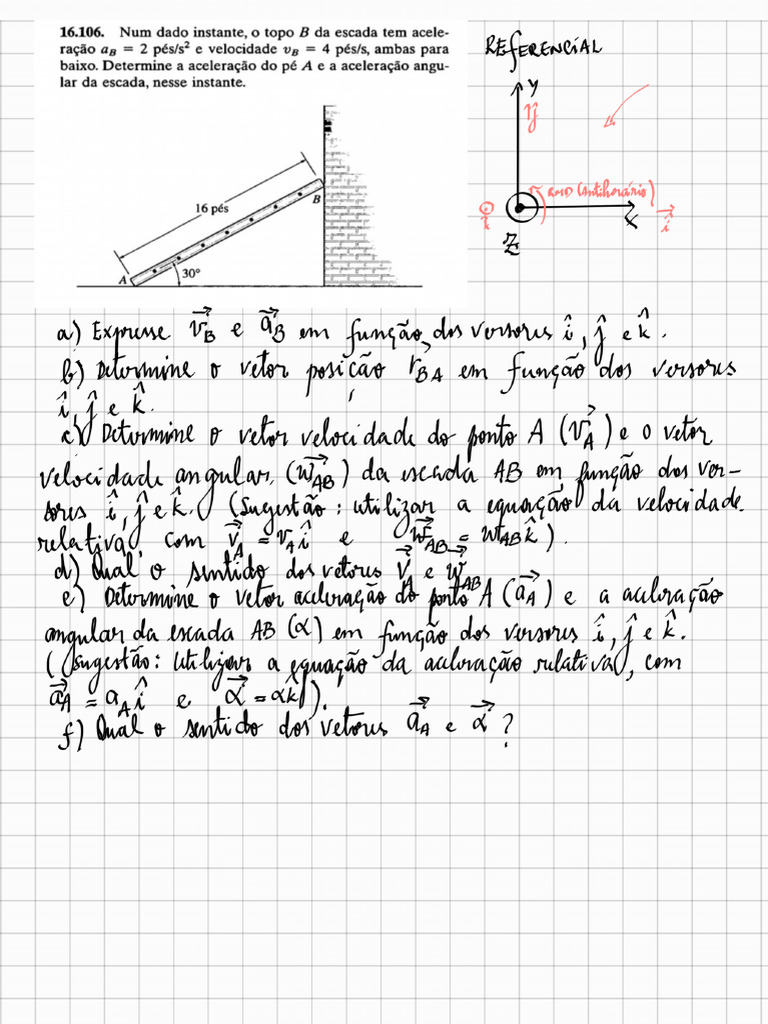 16.106. Num dado instante, o topo B da escada tem acele-
ração aB = 2 pés/s² e velocidade vB = 4 pés/s, ambas para
baixo. Determine a aceleração do pé A e a aceleração angu-
lar da escada, nesse instante.
REFERENCIAL
y
ĵ
16 pés
B
A
30°
(Antihorário)
k̂
x
î
Z
a) Expresse v⃗B e a⃗B em função dos versores î, ĵ e k̂.
b) Determine o vetor posição r⃗BA em função dos versores
î, ĵ e k̂.
c) Determine o vetor velocidade do ponto A (v⃗A) e o vetor
velocidade angular (w⃗AB) da escada AB em função dos ver-
sores î, ĵ e k̂. (Sugestão: utilizar a equação da velocidade
relativa, com v⃗A = vA î e w⃗AB = wAB k̂).
d) Qual o sentido dos vetores v⃗ e w⃗AB
e) Determine o vetor aceleração do ponto A (a⃗A) e a aceleração
angular da escada AB (α) em função dos versores î, ĵ e k̂.
(Sugestão: utilizar a equação da aceleração relativa, com
a⃗A = aA î e α⃗ = αk̂).
f) Qual o sentido dos vetores a⃗A e α⃗ ?